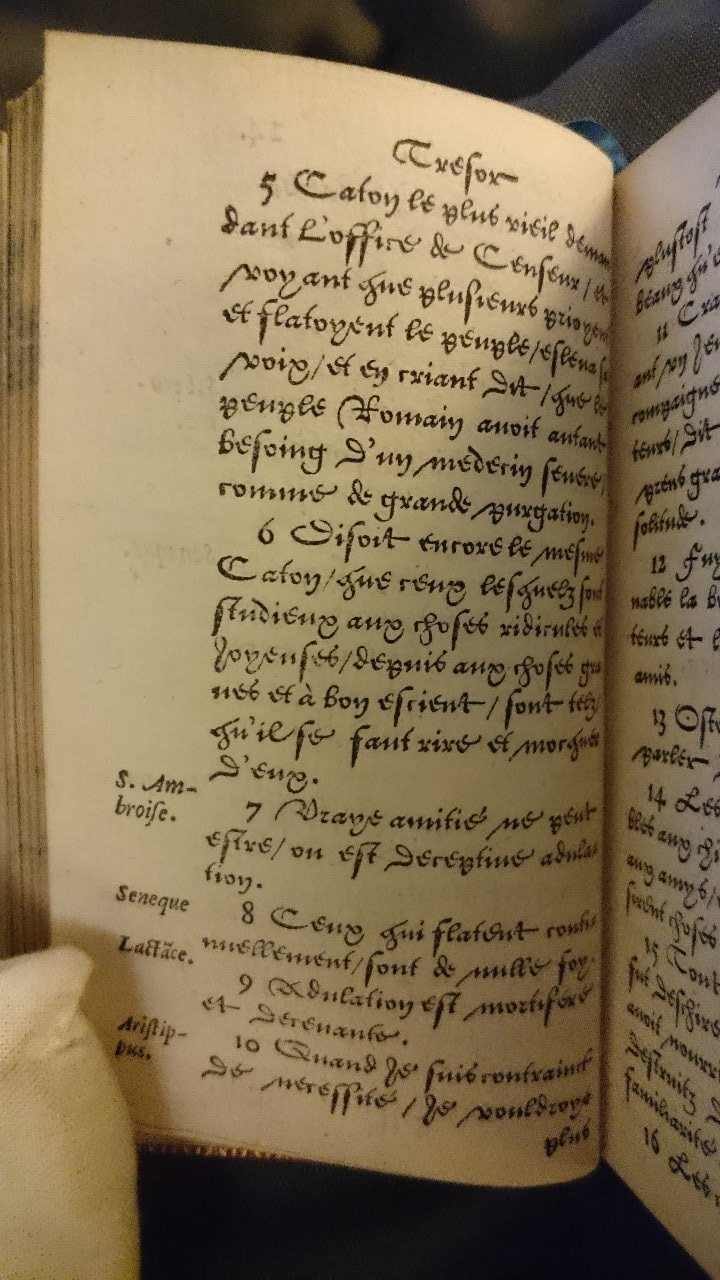 Tresor
5 Caton le plus vieil deman
dant l'office de Censeur / et
voyant que plusieurs prioyent
et flatoyent le peuple / esleua sa
voix / et en criant dit / que le
peuple Romain auoit autant
besoing d'un medecin seuere,
comme de grande purgation.
6 Disoit encore le mesme
Caton / que ceux lesquelz sont
studieux aux choses ridicules et
Joyeuses / depuis aux choses gra
ues et à bon escient / sont telz
qu'il se faut rire et mocquer
d'eux.
S. Am-
broise.
7 Vraye amitié ne peut
estre / ou est deceptiue adula-
tion.
Seneque
8 Ceux qui flatent conti-
nuellement / sont de nulle foy.
Lactāce.
9 Adulation est mortifere
et deceuante.
Aristip-
pus.
10 Quand Je suis contrainct
de necessité / Je vouldroye
plus
plustost
11 Cra
ant vn Jeu
compaigne
teurs / dit
prens gra
solitude.
12 Fuy
nable la b
teurs et l
amis.
13 Oste
parler
14 Les
bles aux chi
aux amys /
sirent choses
15 Tout
fut deschire
auoit nourri
destruitz d
familiarité
16 Les